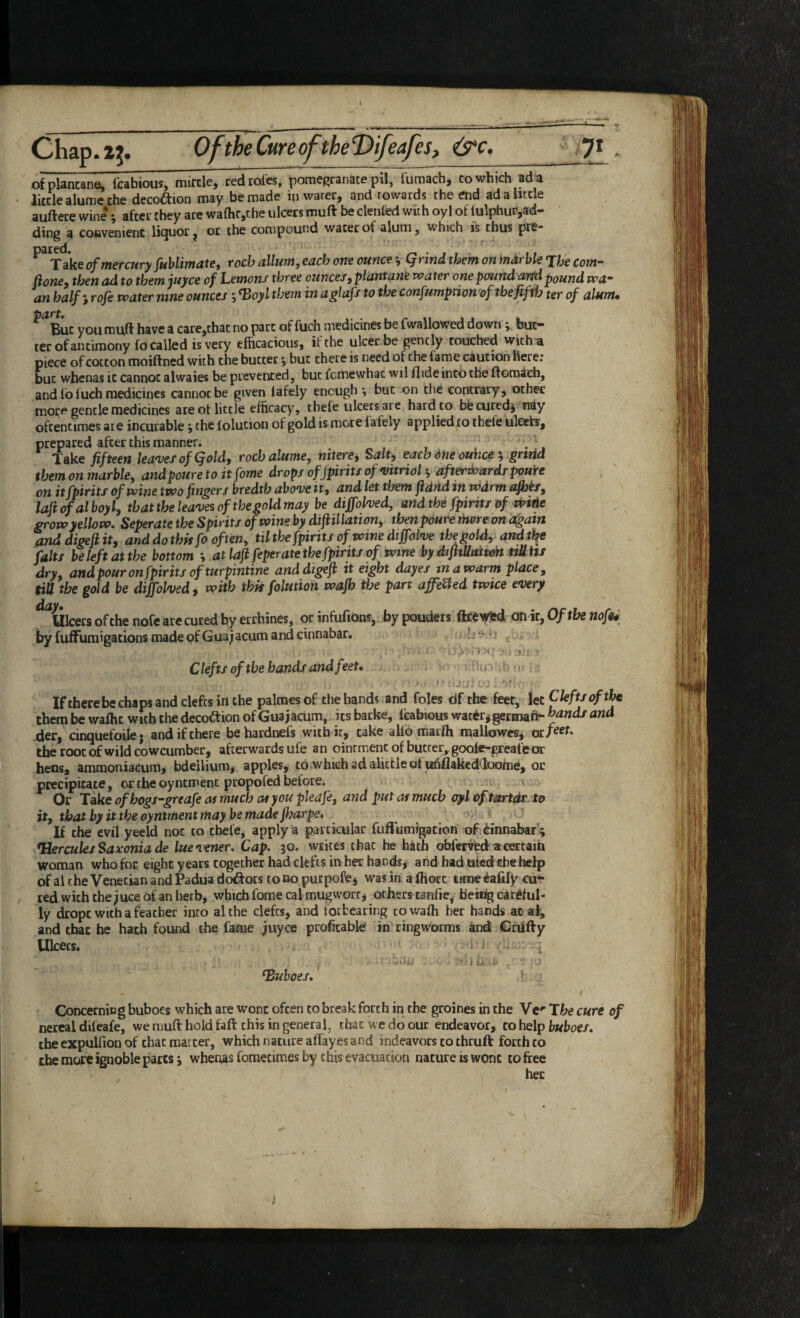 Chap. 23. Of the Cure of the Diſeaſes, &c. 71
of plantane, ſcabious, mirtle, red roſes, pomegranate pil, ſumach, to which ad a
little alume; the decoction may be made in water, and towards the end ad a little
auſtere wine; after they are waſht, the ulcers muſt be clenſed with oyl of ſulphur, ad-
ding a convenient liquor, or the compound water of alum, which is thus pre-
pared.
Take of mercury ſublimate, roch allum, each one ounce; Grind them on marble The com-
ſtone, then ad to them juyce of Lemons three ounces, plantane water one pound and pound wa-
an half; roſe water nine ounces; Boyl them in a glaſs to the conſumption of the fifth ter of alum.
part.
But you muſt have a care, that no part of ſuch medicines be ſwallowed down; but-
ter of antimony ſo called is very efficacious, if the ulcer be gently touched with a
piece of cotton moiſtned with the butter; but there is need of the ſame caution here:
but whenas it cannot alwaies be prevented, but ſomewhat wil ſlide into the ſtomach,
and ſo ſuch medicines cannot be given ſafely enough; but on the contrary, other
more gentle medicines are of little efficacy, theſe ulcers are hard to be cured, nay
oftentimes are incurable; the ſolution of gold is more ſafely applied to theſe ulcers,
prepared after this manner.
Take fifteen leaves of Gold, roch alume, nitere, Salt, each one ounce; grind
them on marble, and poure to it ſome drops of ſpirits of vitriol; afterwards poure
on it ſpirits of wine two fingers bredth above it, and let them ſtand in warm aſhes,
laſt of al boyl, that the leaves of the gold may be diſſolved, and the ſpirits of wine
grow yellow. Seperate the Spirits of wine by diſtillation, then poure more on again
and digeſt it, and do this ſo often, til the ſpirits of wine diſſolve the gold, and the
ſalts be left at the bottom; at laſt ſeperate the ſpirits of wine by diſtillation till tis
dry, and pour on ſpirits of turpintine and digeſt it eight dayes in a warm place,
till the gold be diſſolved, with this ſolution waſh the part affected twice every
day.
Ulcers of the noſe are cured by errhines, or infuſions, by pouders ſtrewed on it, Of the noſe.
by ſuffumigations made of Guajacum and cinnabar.
Clefts of the hands and feet.
If there be chaps and clefts in the palmes of the hands and ſoles of the feet, let Clefts of the
them be waſht with the decoction of Guajacum, its barke, ſcabious water, german- hands and
der, cinquefoile; and if there be hardneſs with it, take alſo marſh mallowes, or feet.
the root of wild cowcumber, afterwards uſe an ointment of butter, gooſe-greaſe or
hens, ammoniacum, bdellium, apples, to which ad a little of unſlaked loome, or
precipitate, or the oyntment propoſed before.
Or Take of hogs-greaſe as much as you pleaſe, and put as much oyl of tartar to
it, that by it the oyntment may be made ſharpe.
If the evil yeeld not to theſe, apply a particular ſuffumigation of cinnabar;
Hercules Saxonia de lue vener. Cap. 30. writes that he hath obſerved a certain
woman who for eight years together had clefts in her hands, and had uſed the help
of al the Venetian and Padua doctors to no purpoſe, was in a ſhort time eaſily cu-
red with the juce of an herb, which ſome cal mugwort, others tanſie, being careful-
ly dropt with a feather into al the clefts, and forbearing to waſh her hands at al,
and that he hath found the ſame juyce profitable in ringworms and Cruſty
Ulcers.
Buboes.
Concerning buboes which are wont often to break forth in the groines in the Ve- The cure of
nereal diſeaſe, we muſt hold faſt this in general, that we do our endeavor, to help buboes.
the expulſion of that matter, which nature aſſayes and indeavors to thruſt forth to
the more ignoble parts; whenas ſometimes by this evacuation nature is wont to free
her